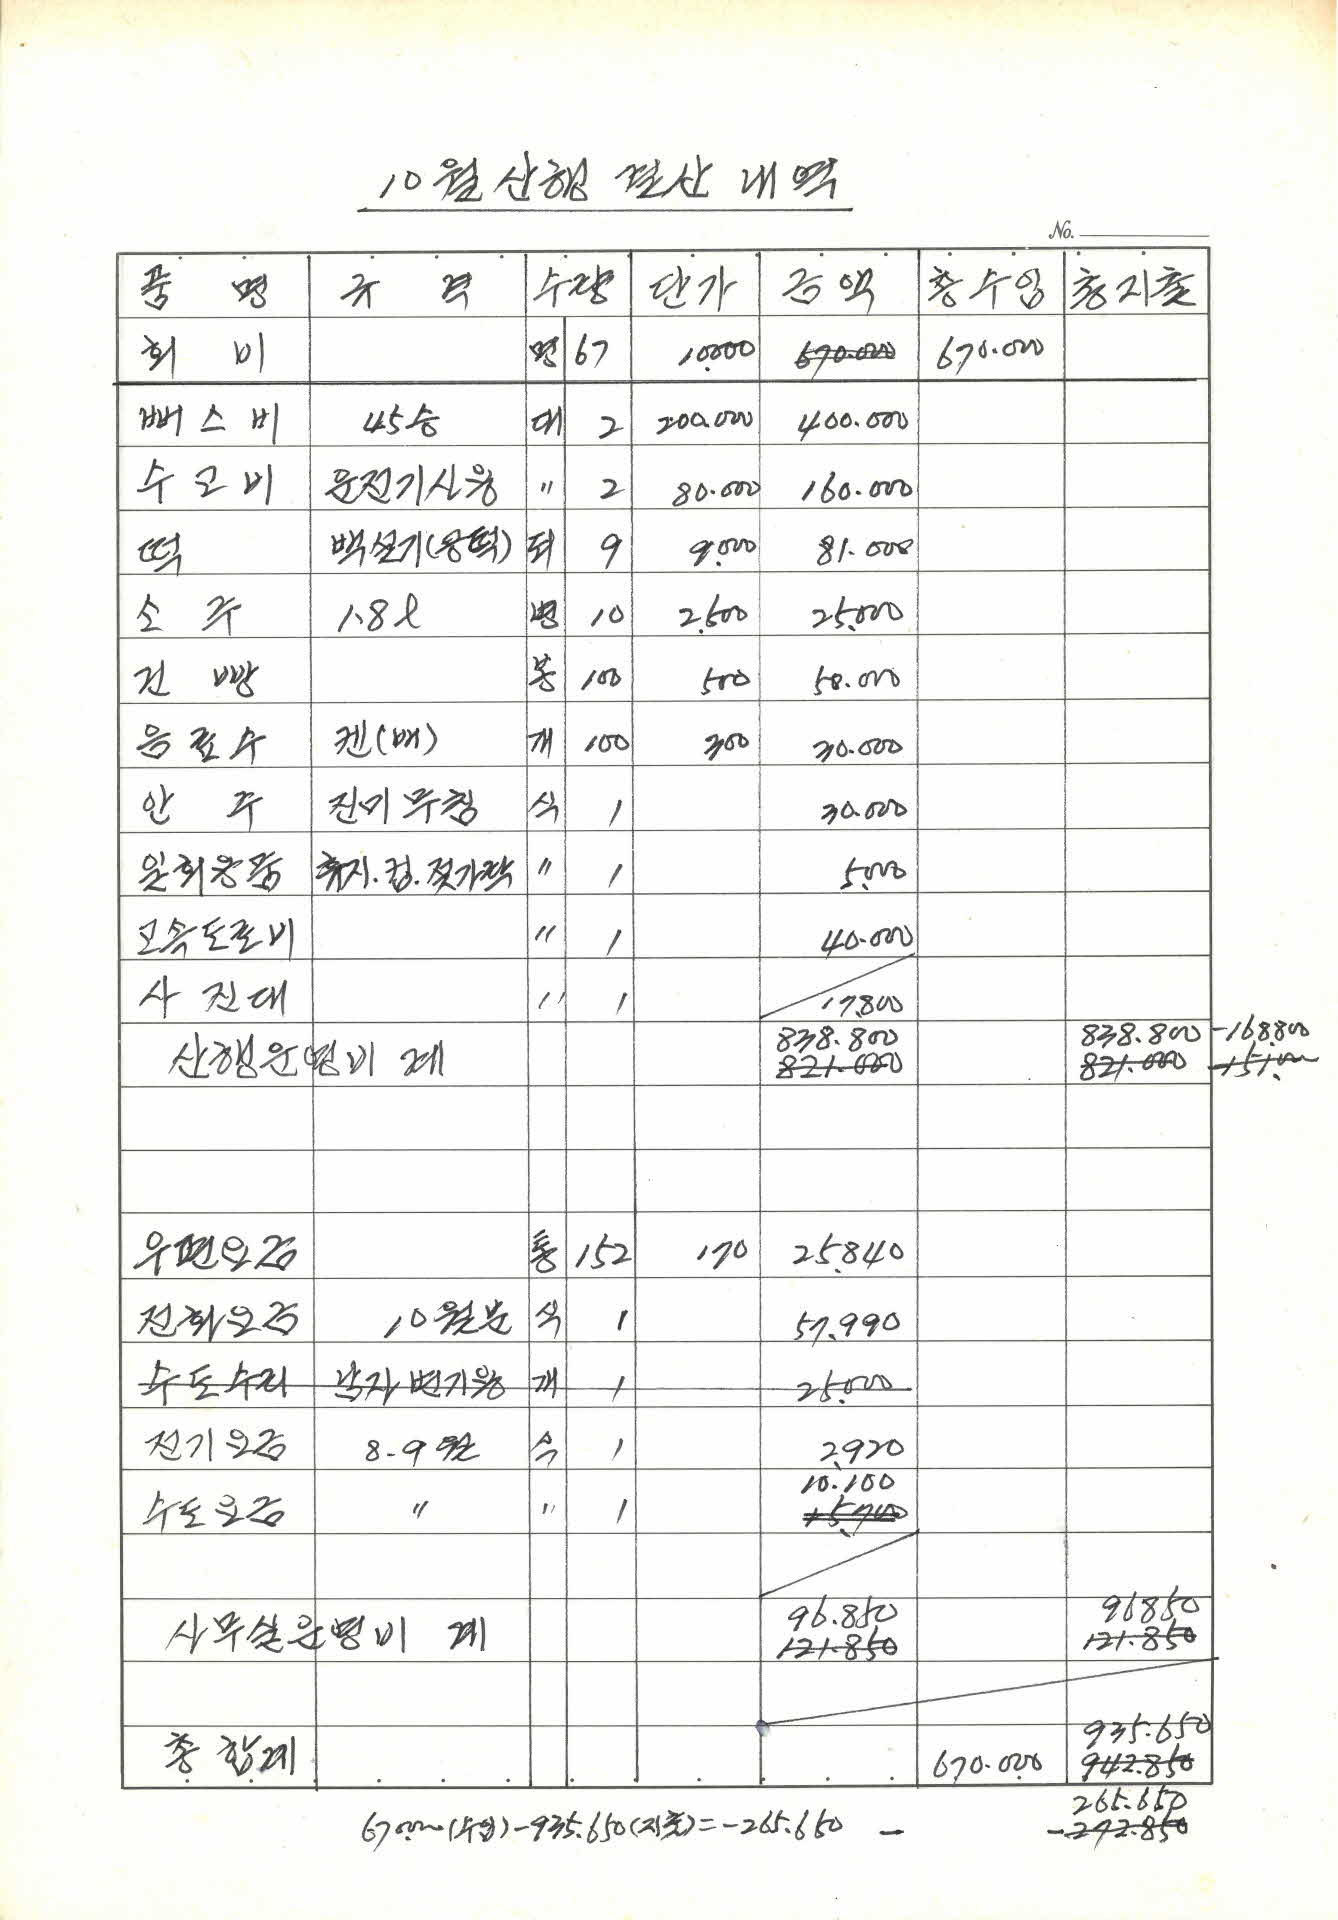 10월 산행 결산 내역
No.
품 명 규 격 수량 단가 금액 총수입 총지출
회 비 명 67 10.000 670.000 670.000
뻐스비 45승 대 2 200.000 400.000
수고비 운전기사용 〃 2 80.000 160.000
떡 백설기(콩떡) 되 9 9.000 81.000
소 주 1.8ℓ 병 10 2.500 25.000
건 빵 봉 100 500 50.000
음료수 켄(배) 개 100 300 30.000
안 주 진미무침 식 1 30.000
일회용품 휴지.컵.젓가락 〃 1 5.000
고속도로비 〃 1 40.000
사진대 〃 1 17.800
838.800 838.800 -168.800
산행운영비 계 821.000 821.000 -151.000
우편요금 통 152 170 25.840
전화요금 10월분 식 1 57.990
수도수리 남자변기용 개 1 25.000
전기요금 8-9월 식 1 2.920
10.100
수도요금 〃 〃 1 15.700
96.850 96850
사무실운영비 계 121.850 121.850
935.650
총 합계 670.000 942.850
265.650
670.000(수입)-935.650(지출)=-265.650 - -272.850